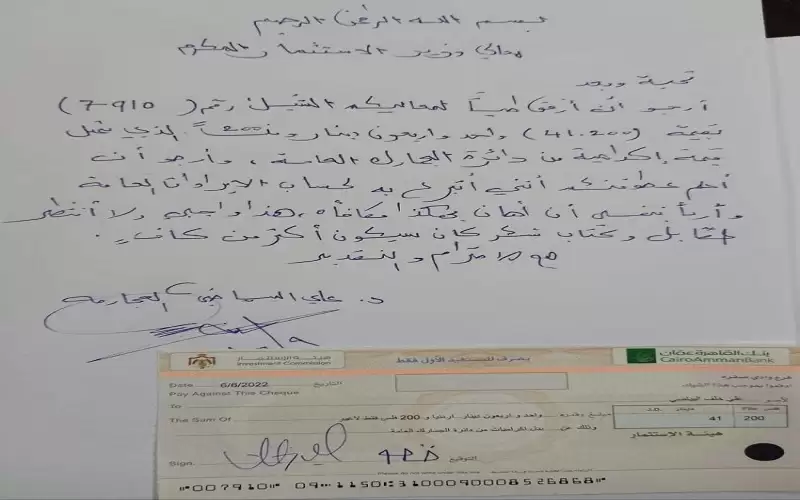 بسم الله الرحمن الرحيم
معالي وزير الاستثمار المكرم
تحية وبعد
أرجو أن أرفق طياً لمعاليكم الشيك رقم (7910)
بقيمة (41.200) واحد واربعون دينار و 200 الذي يمثل
قيمة إكرامية من دائرة الجمارك العامة ، وأرجو أن
أعلم عطوفتكم أنني أتبرع به لحساب الايرادات العامة
وأربأ بنفسي أن أهان بهكذا مكافأة، هذا واجبي ولا أنتظر
المقابل وكتاب شكر كان سيكون أكثر من كافٍ.
مع الاحترام والتقدير
د. علي السما العجارمة
هيئة الاستثمار
Investment Commission
يصرف للمستفيد الأول فقط
بنك القاهرة عمان
CairoAmmanBank
Date 6/8/2022 التاريخ
Pay Against This Cheque
To
علي خلف
The Sum Of واحد و اربعون دينار اردنيا و 200 فلس فقط لاغير
فلس Fils دينار J.D.
200 41
وذلك عن بدل اكراميات من دائرة الجمارك العامة
هيئة الاستثمار
Sign. التوقيع
⑈007910⑈